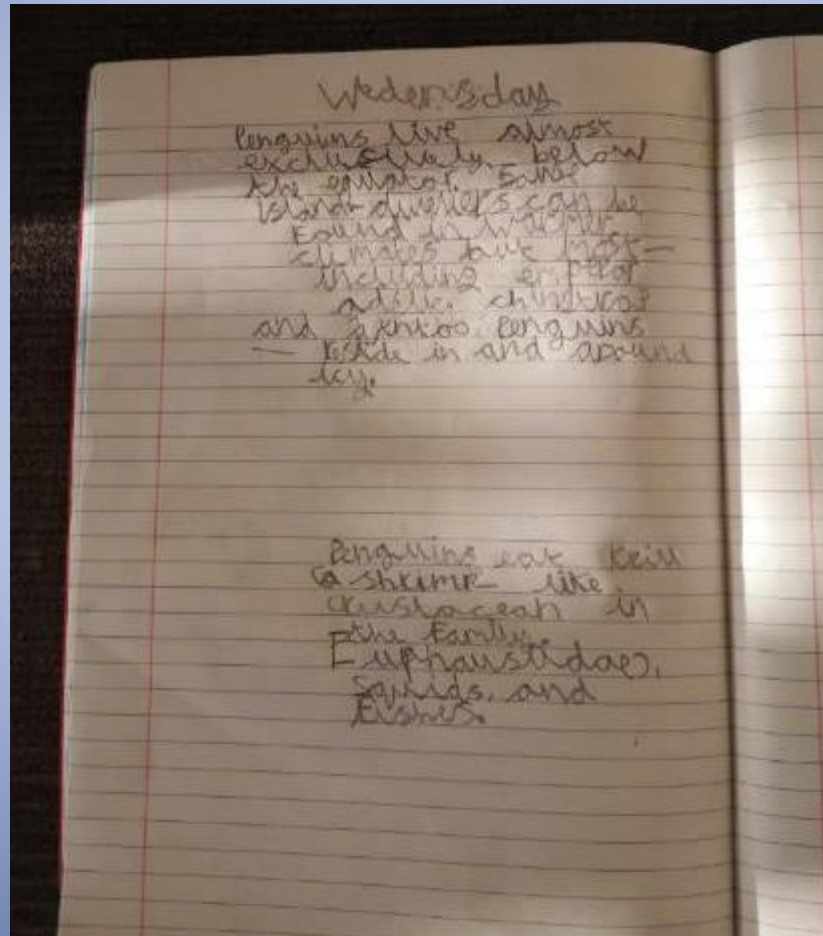 Wedensday
Penguins live almost
exclusively below
the equator. Some
island-dwellers can be
found in warmer
climates but most—
including emperor
adélie, chinstrap
and gentoo penguins
— reside in and around
icy.
Penguins eat krill
(a shrimp-like
crustacean in
the family
Euphausiidae),
squids, and
fishes.